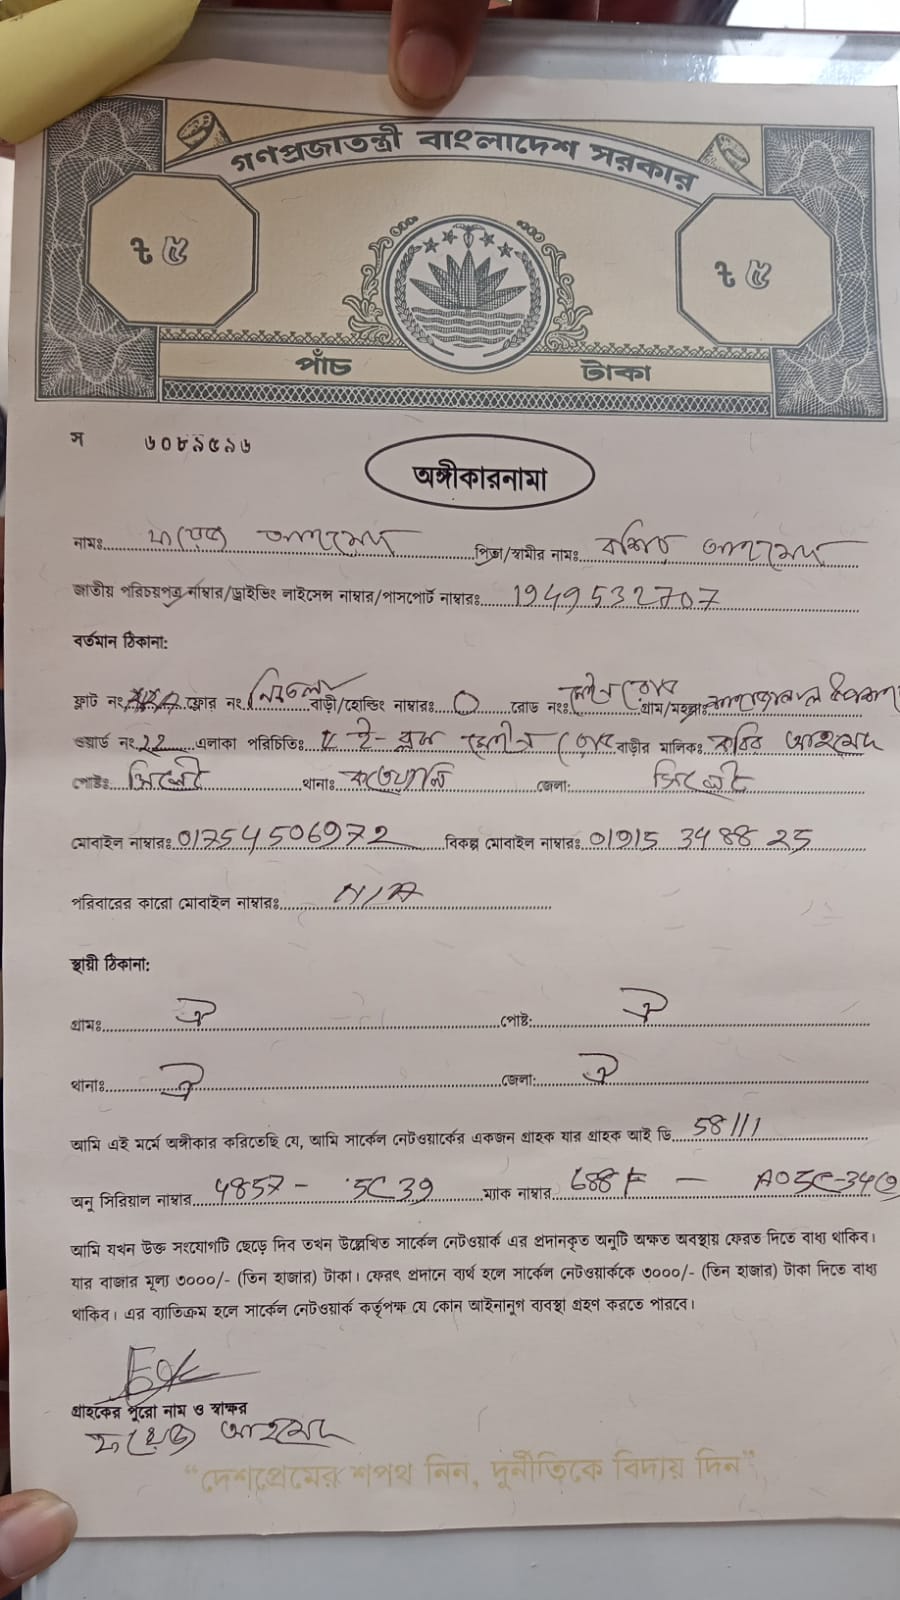 গণপ্রজাতন্ত্রী বাংলাদেশ সরকার
৳ ৫ ৳ ৫
পাঁচ টাকা
স ৬০৮৯৫৯৬
অঙ্গীকারনামা
নামঃ ফয়েজ আহমেদ পিতা/স্বামীর নামঃ বশির আহমেদ
জাতীয় পরিচয়পত্র নাম্বার/ড্রাইভিং লাইসেন্স নাম্বার/পাসপোর্ট নাম্বারঃ 1949532707
বর্তমান ঠিকানা:
ফ্লাট নং ফ্লোর নং নিচতলা বাড়ী/হোল্ডিং নাম্বারঃ 0 রোড নং মেইন রোড গ্রাম/মহল্লাঃ শাহজালাল উপশহর
ওয়ার্ড নং 22 এলাকা পরিচিতিঃ ই-ব্লক মেইন রোড বাড়ীর মালিকঃ কবির আহমেদ
পোষ্টঃ সিলেট থানাঃ কতোয়ালি জেলা: সিলেট
মোবাইল নাম্বারঃ 01754506972 বিকল্প মোবাইল নাম্বারঃ 01915 348825
পরিবারের কারো মোবাইল নাম্বারঃ N/A
স্থায়ী ঠিকানা:
গ্রামঃ ঐ পোষ্ট: ঐ
থানাঃ ঐ জেলা: ঐ
আমি এই মর্মে অঙ্গীকার করিতেছি যে, আমি সার্কেল নেটওয়ার্কের একজন গ্রাহক যার গ্রাহক আই ডি 58111
অনু সিরিয়াল নাম্বার 4857 - 5C39 ম্যাক নাম্বার 688F - A05C-34
আমি যখন উক্ত সংযোগটি ছেড়ে দিব তখন উল্লেখিত সার্কেল নেটওয়ার্ক এর প্রদানকৃত অনুটি অক্ষত অবস্থায় ফেরত দিতে বাধ্য থাকিব।
যার বাজার মূল্য ৩০০০/- (তিন হাজার) টাকা। ফেরৎ প্রদানে ব্যর্থ হলে সার্কেল নেটওয়ার্ককে ৩০০০/- (তিন হাজার) টাকা দিতে বাধ্য
থাকিব। এর ব্যতিক্রম হলে সার্কেল নেটওয়ার্ক কর্তৃপক্ষ যে কোন আইনানুগ ব্যবস্থা গ্রহণ করতে পারবে।
গ্রাহকের পুরো নাম ও স্বাক্ষর
ফয়েজ আহমেদ
“দেশপ্রেমের শপথ নিন, দুর্নীতিকে বিদায় দিন”